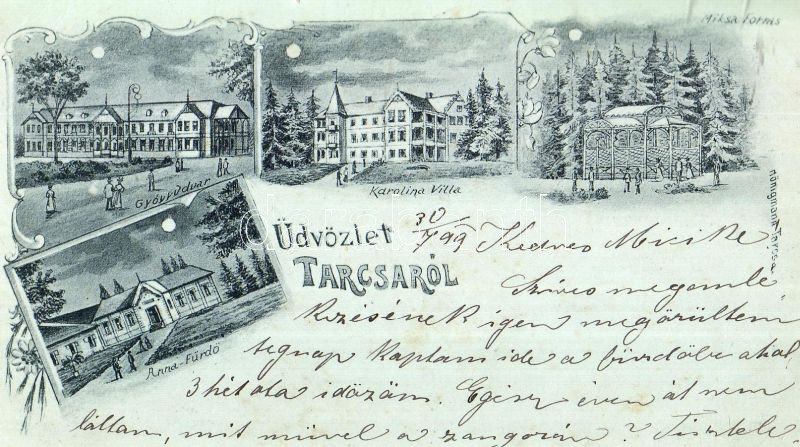 Miksa forrás
Gyógyudvar
Karolina Villa
Anna-Fürdő
Üdvözlet
TARCSARÓL
Tarcsa.
30/7 99 Kedves Micike
Szíves megemlé
kezésének igen megörültem
tegnap kaptam ide a fürdőbe ahol
3 hét óta időzöm. Egész éven át nem
láttam, mit művel a zongorán?